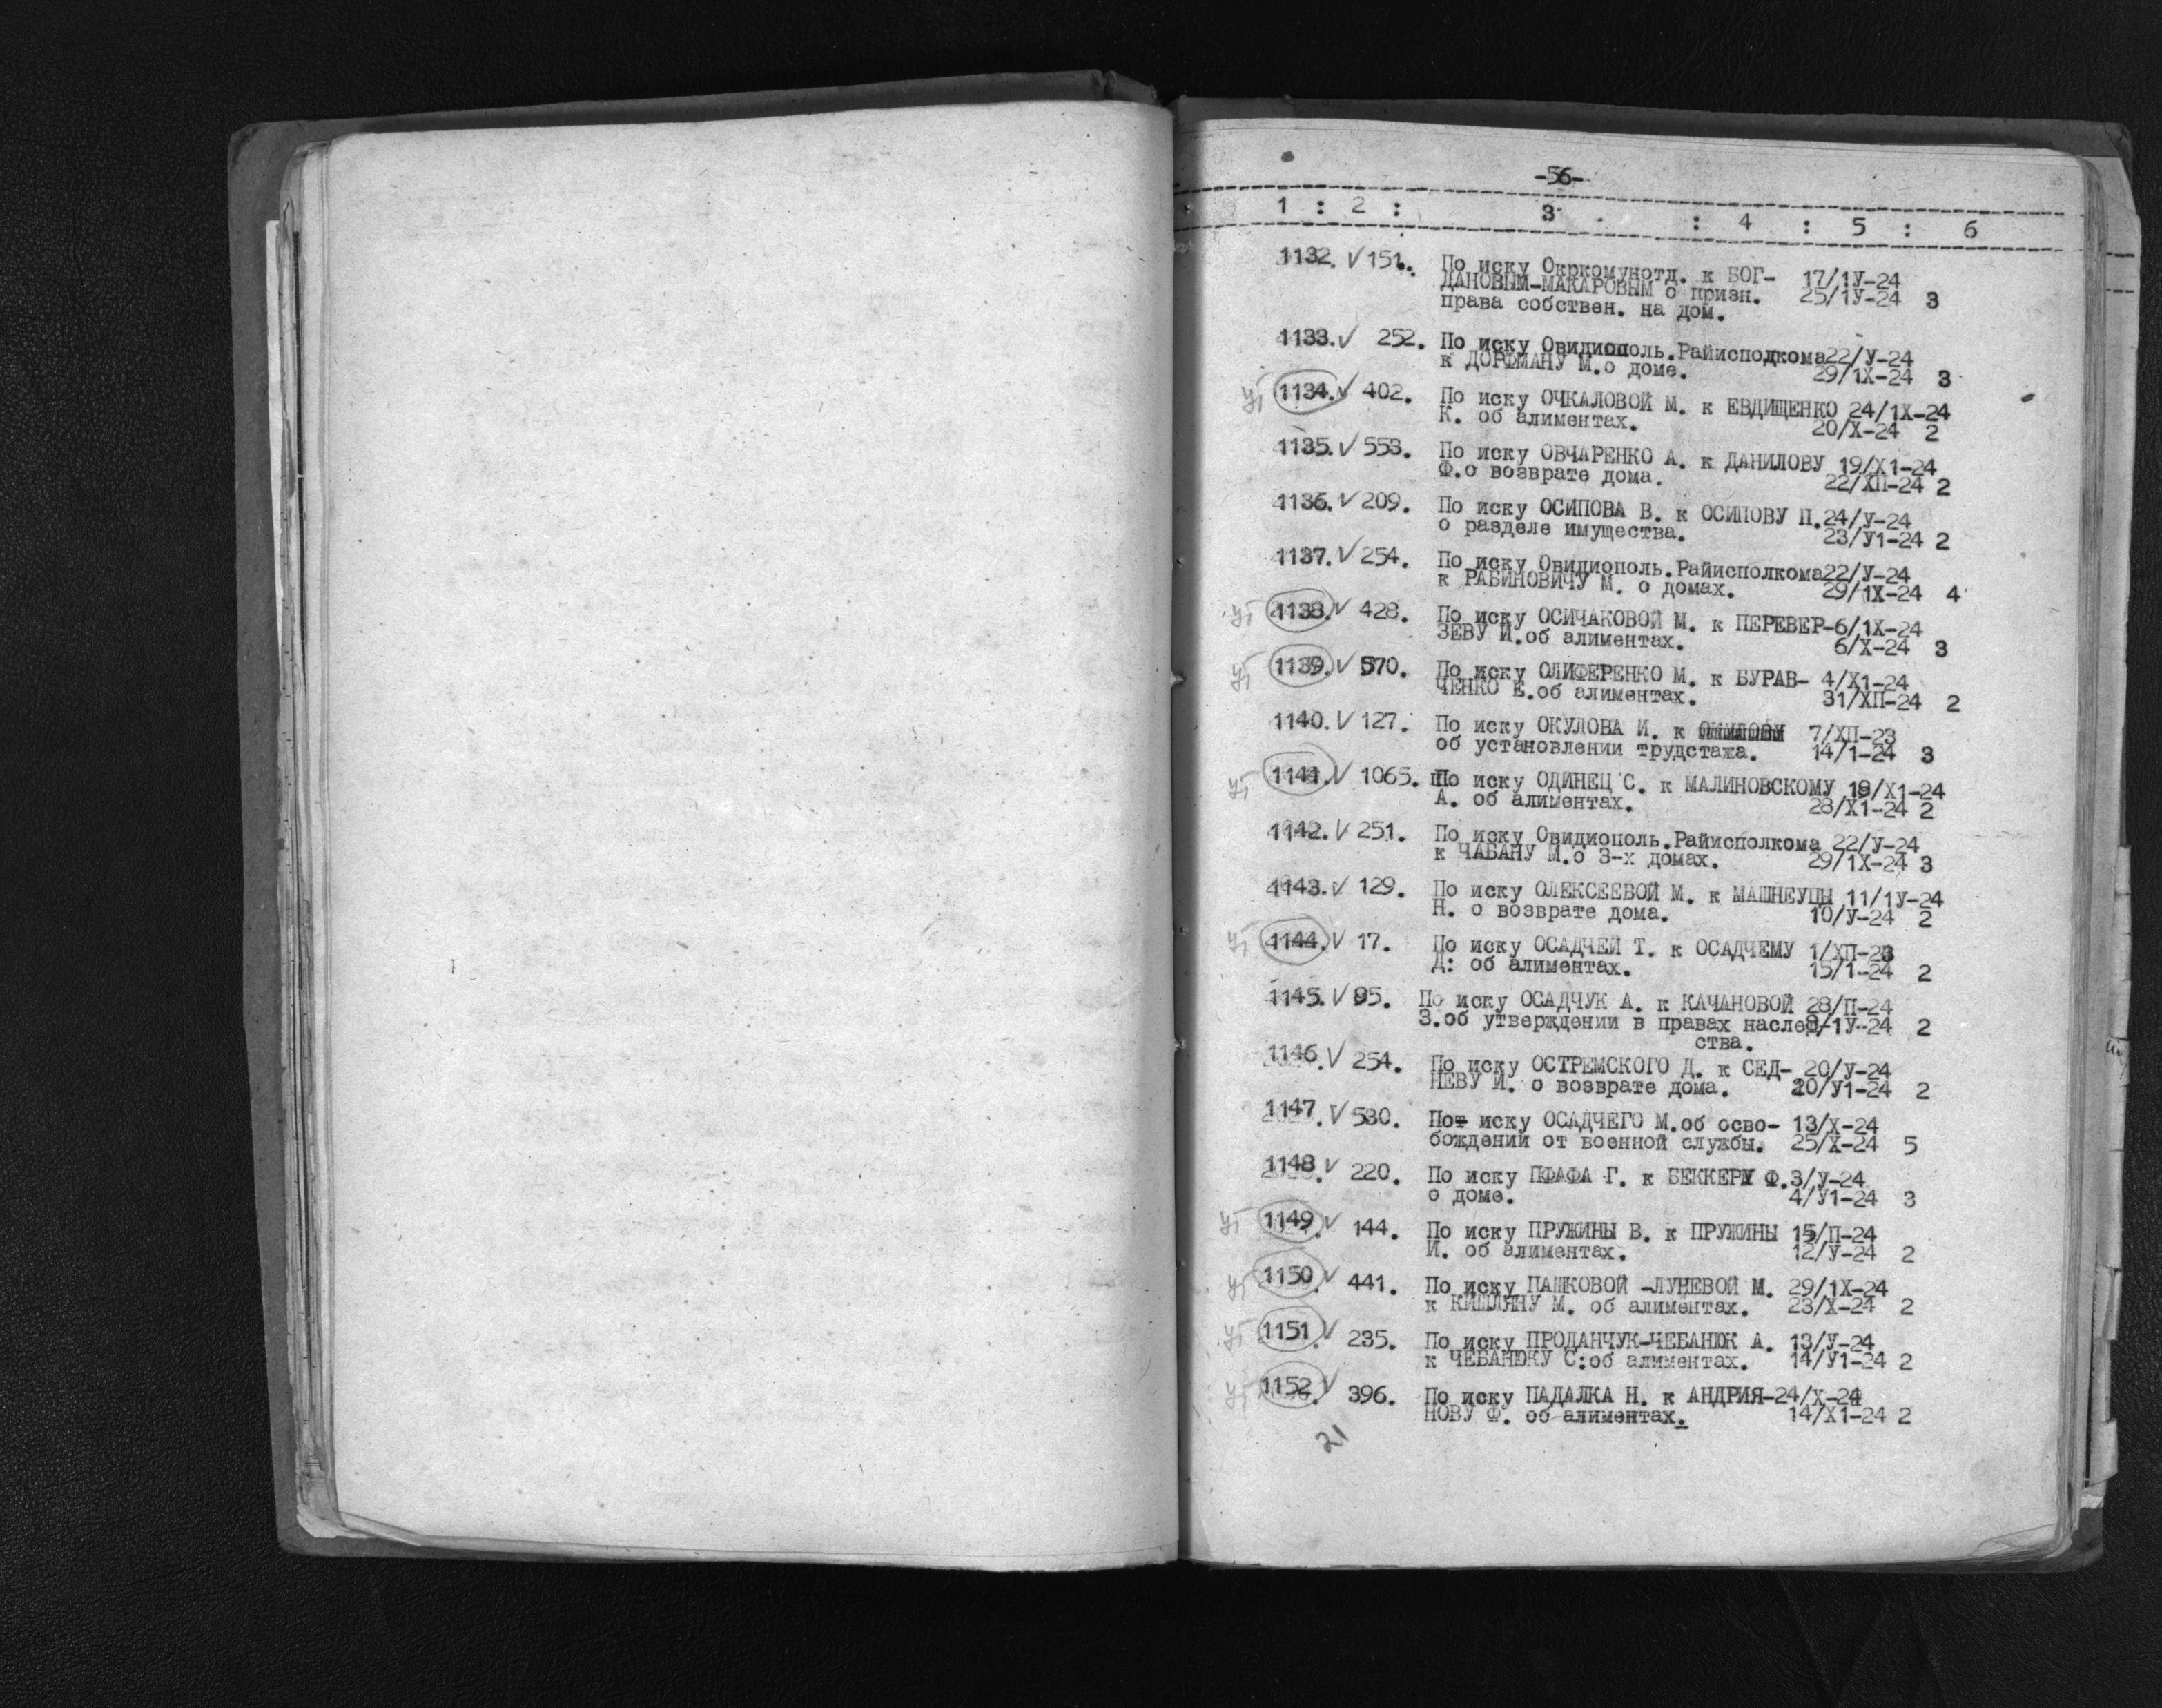 -56-
1 : 2 : 3 : 4 : 5 : 6
1132. V 151. По иску Окркомунотд. к БОГ- 17/1У-24
ДАНОВЫМ-МАКАРОВЫМ о призн. 25/1У-24 3
права собствен. на дом.
1133. V 252. По иску Овидиополь.Райисподкома22/У-24
к ДОРФМАНУ М.о доме. 29/1Х-24 3
1134. V 402. По иску ОЧКАЛОВОЙ М. к ЕВДИЩЕНКО 24/1Х-24
К. об алиментах. 20/Х-24 2
1135. V 553. По иску ОВЧАРЕНКО А. к ДАНИЛОВУ 19/Х1-24
Ф.о возврате дома. 22/ХП-24 2
1136. V 209. По иску ОСИПОВА В. к ОСИПОВУ П.24/У-24
о разделе имущества. 23/У1-24 2
1137. V 254. По иску Овидиополь.Райисполкома22/У-24
к РАБИНОВИЧУ М. о домах. 29/1Х-24 4
1138. V 428. По иску ОСИЧАКОВОЙ М. к ПЕРЕВЕР-6/1Х-24
ЗЕВУ И.об алиментах. 6/Х-24 3
1139. V 570. По иску ОЛИФЕРЕНКО М. к БУРАВ- 4/Х1-24
ЧЕНКО Е.об алиментах. 31/ХП-24 2
1140. V 127. По иску ОКУЛОВА И. к 7/ХП-23
об установлении трудстажа. 14/1-24 3
1141. V 1065. По иску ОДИНЕЦ С. к МАЛИНОВСКОМУ 19/Х1-24
А. об алиментах. 28/Х1-24 2
1142. V 251. По иску Овидиополь.Райисполкома 22/У-24
к ЧАБАНУ М.о 3-х домах. 29/1Х-24 3
1143. V 129. По иску ОЛЕКСЕЕВОЙ М. к МАШНЕУЦЫ 11/1У-24
Н. о возврате дома. 10/У-24 2
1144. V 17. По иску ОСАДЧЕЙ Т. к ОСАДЧЕМУ 1/ХП-23
Д: об алиментах. 15/1-24 2
1145. V 95. По иску ОСАДЧУК А. к КАЧАНОВОЙ 28/П-24
З.об утверждении в правах наслед-1У-24 2
ства.
1146. V 254. По иску ОСТРЕМСКОГО Д. к СЕД- 20/У-24
НЕВУ И. о возврате дома. 20/У1-24 2
1147. V 530. Пот иску ОСАДЧЕГО М.об осво- 13/Х-24
бождении от военной службы. 25/Х-24 5
1148. V 220. По иску ПФАФА Г. к БЕККЕРУ Ф.3/У-24
о доме. 4/У1-24 3
1149. V 144. По иску ПРУЖИНЫ В. к ПРУЖИНЫ 15/П-24
И. об алиментах. 12/У-24 2
1150. V 441. По иску ПАШКОВОЙ -ЛУНЕВОЙ М. 29/1Х-24
к КИШЛЯНУ М. об алиментах. 23/Х-24 2
1151. V 235. По иску ПРОДАНЧУК-ЧЕБАНЮК А. 13/У-24
к ЧЕБАНЮКУ С:об алиментах. 14/У1-24 2
1152. V 396. По иску ПАДАЛКА Н. к АНДРИЯ-24/Х-24
НОВУ Ф. об алиментах. 14/Х1-24 2
21